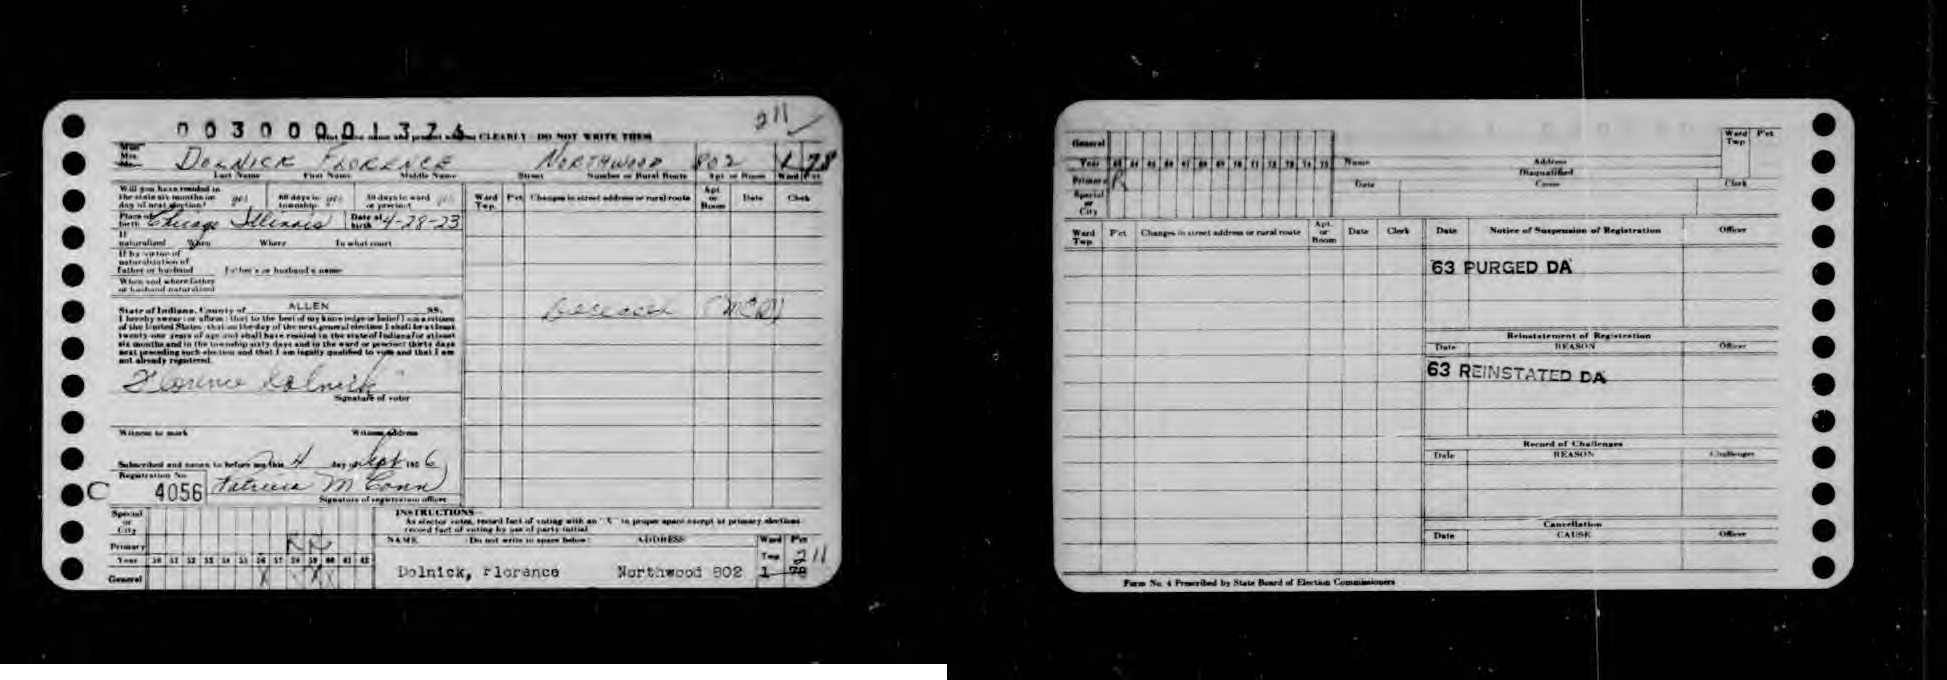 003000013
CLEARLY - DO NOT WRITE THEM
211
DOLNICK FLORENCE NORTHWOOD 802 1 78
Last Name First Name Middle Name Street Number or Rural Route Apt or Room Ward Pct
Will you have resided in the state six months on day of next election? yes 60 days in township yes 30 days in ward or precinct yes
Ward Twp. P'ct Changes in street address or rural route Apt. or Room Date Clerk
Place of birth Chicago Illinois Date of birth 4-28-23
If naturalized When Where In what court
If by virtue of naturalization of father or husband Father's or husband's name
When and where father or husband naturalized
State of Indiana, County of ALLEN SS:
I hereby swear (or affirm) that to the best of my knowledge or belief I am a citizen
of the United States; that on the day of the next general election I shall be at least
twenty-one years of age and shall have resided in the state of Indiana for at least
six months and in the township sixty days and in the ward or precinct thirty days
next preceding such election and that I am legally qualified to vote and that I am
not already registered.
Deceased
Florence Dolnick
Signature of voter
Witness to mark Witness Address
Subscribed and sworn to before me this 4 day of Sept 1956
Registration No.
C 4056 Patricia M Conn
Signature of registration officer
INSTRUCTIONS
As elector votes, record fact of voting with an "X" in proper space except at primary elections
record fact of voting by use of party initial
Special or City
Primary R R
Year 50 51 52 53 54 55 56 57 58 59 60 61 62
General X X X
NAME (Do not write in space below) ADDRESS Ward Twp. Pct
211
Dolnick, Florence Northwood 802 1 78
General
Year 63 64 65 66 67 68 69 70 71 72 73 74 75
Primary R
Special or City
Name Address Ward Twp P'ct
Disqualified
Date Cause Clerk
Ward Twp. P'ct Changes in street address or rural route Apt. or Room Date Clerk
Date Notice of Suspension of Registration Officer
63 PURGED DA
Reinstatement of Registration
Date REASON Officer
63 REINSTATED DA
Record of Challenges
Date REASON Challenger
Cancellation
Date CAUSE Officer
Form No. 4 Prescribed by State Board of Election Commissioners